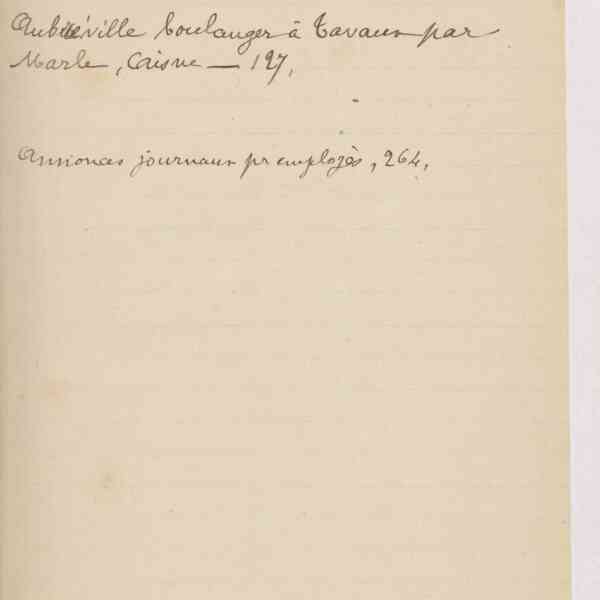 Aubréville boulanger à Tavaux par
Marle, Aisne — 127,
Annonces journaux pr employés, 264,